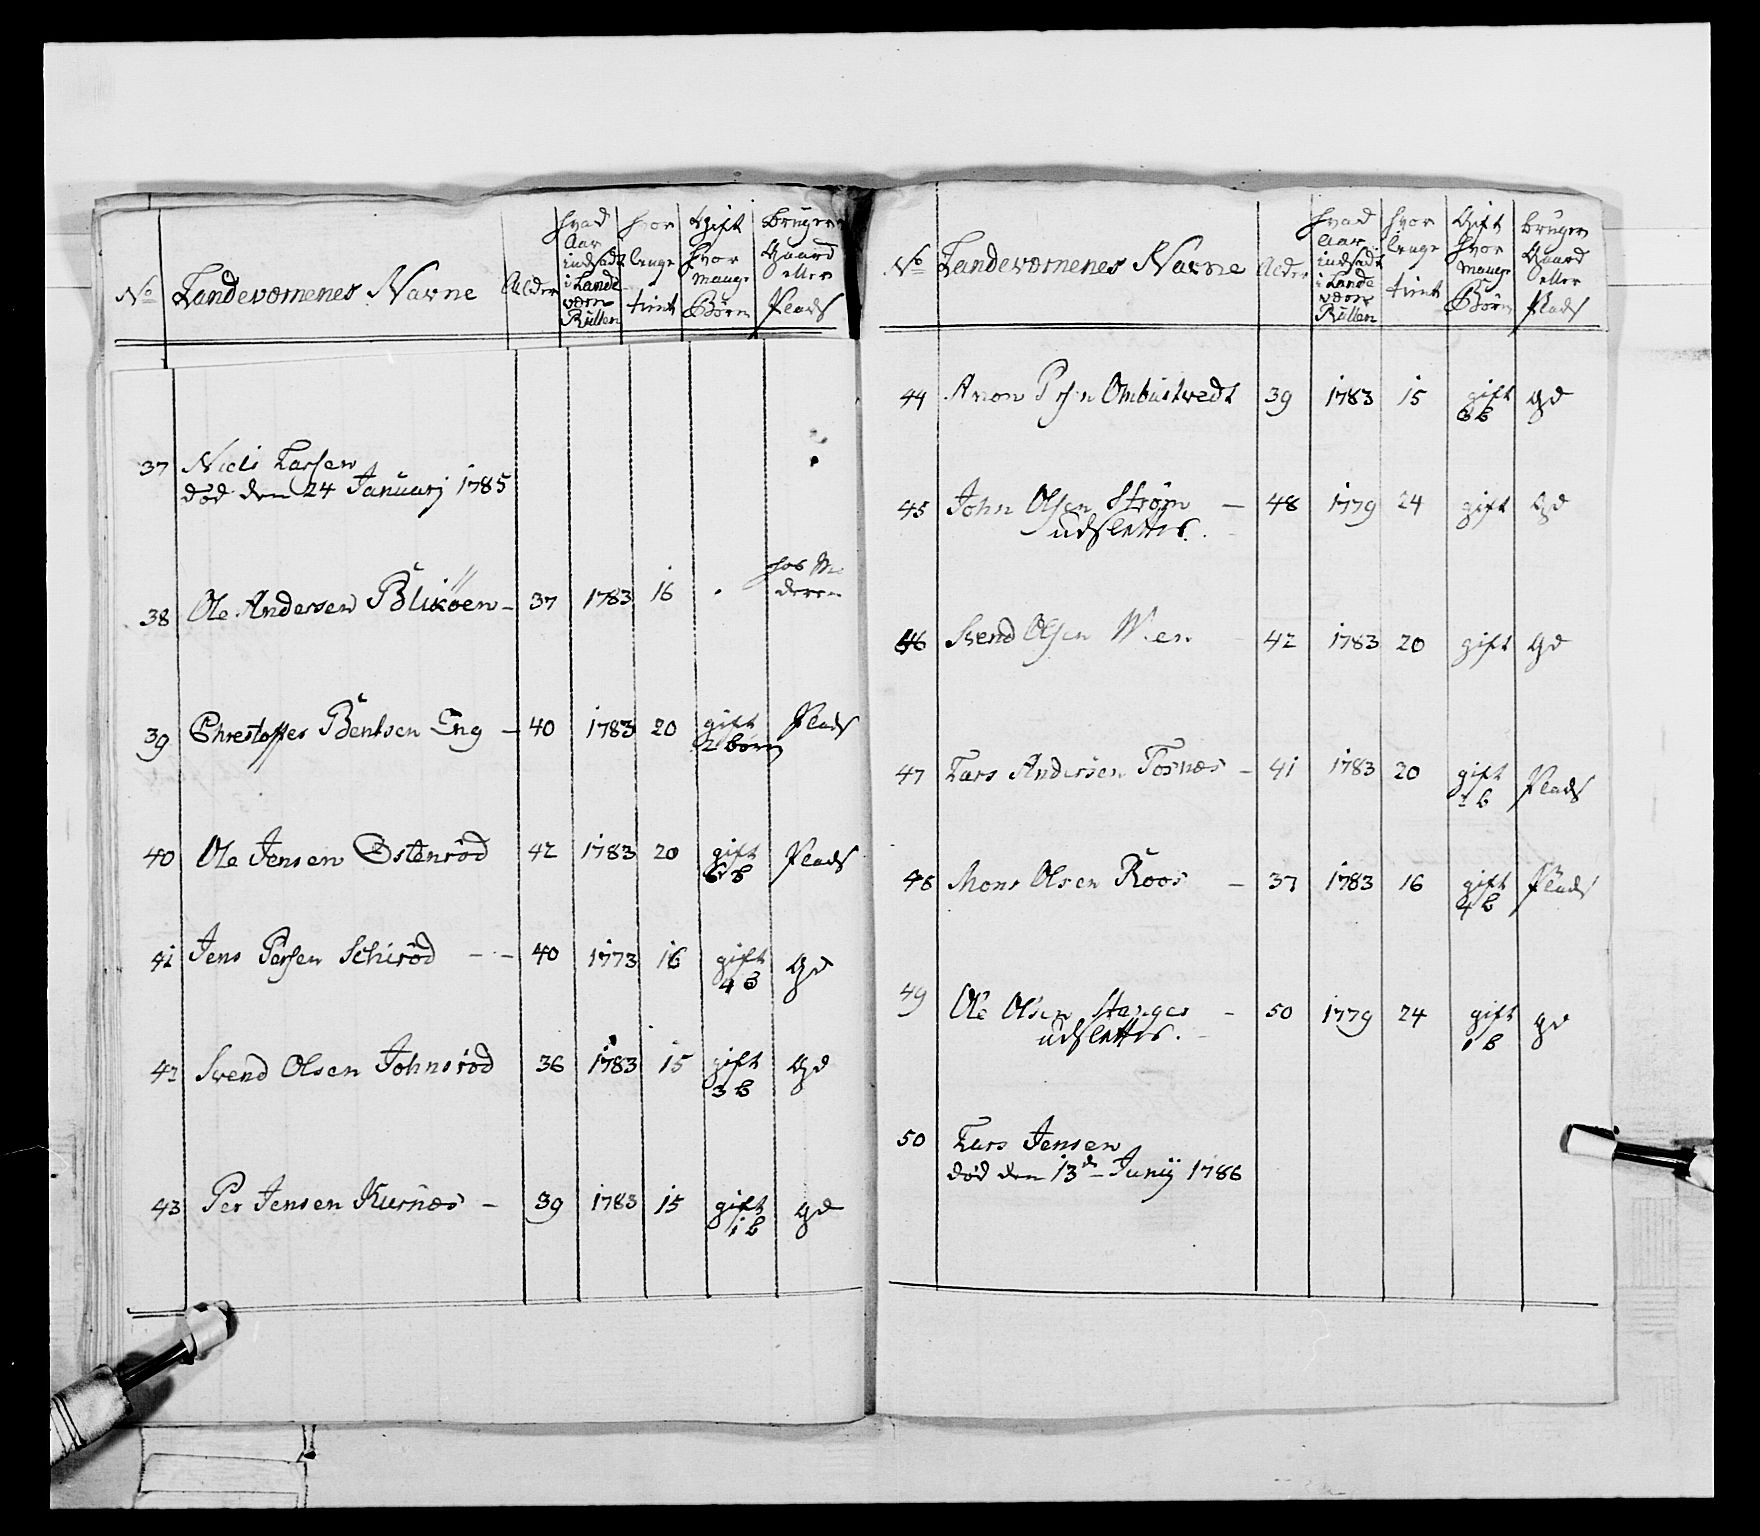 No Landeværnenes Navne Alder hvad Aar indsadt i Lande værn Rullen hvor længe tient Gift hvor mange Börn bruger Gaard eller Plads
37 Niels Larsen
död den 24 Januarj 1785
38 Ole Andersen Blixöen - 37 1783 16 . hos
deren
39 Chrestoffer Bentsen Eng - 40 1783 20 gift Plads
2 börn
40 Ole Jensen Østenröd 42 1783 20 gift Plads
6 b
41 Jens Persen Schiröd - - 40 1773 16 gift gd
4 B
42 Svend Olsen Johnsröd 36 1783 15 gift gd
3 B
43 Per Jensen Kurnæs - 39 1783 15 gift gd
1 b
No Landeværnenes Navne Alder hvad Aar indsadt i Lande værn Rullen hvor længe tient Gift hvor mange Börn bruger Gaard eller Plads
44 Aron Prsen Ombustvedt 39 1783 15 gift gd
3 b
45 John Olsen Ström - 48 1779 24 gift gd
udslettes.
46 Svend Olsen 42 1783 20 gift gd
47 Lars Andersen Tosnæs - 41 1783 20 gift Plads
b
48 Mons Olsen Roos - 37 1783 16 gift Plads
4 b
49 Ole Olsen Stanges - 50 1779 24 gift gd
udslettes. 1 B
50 Lars Jensen
död den 13de Junij 1786